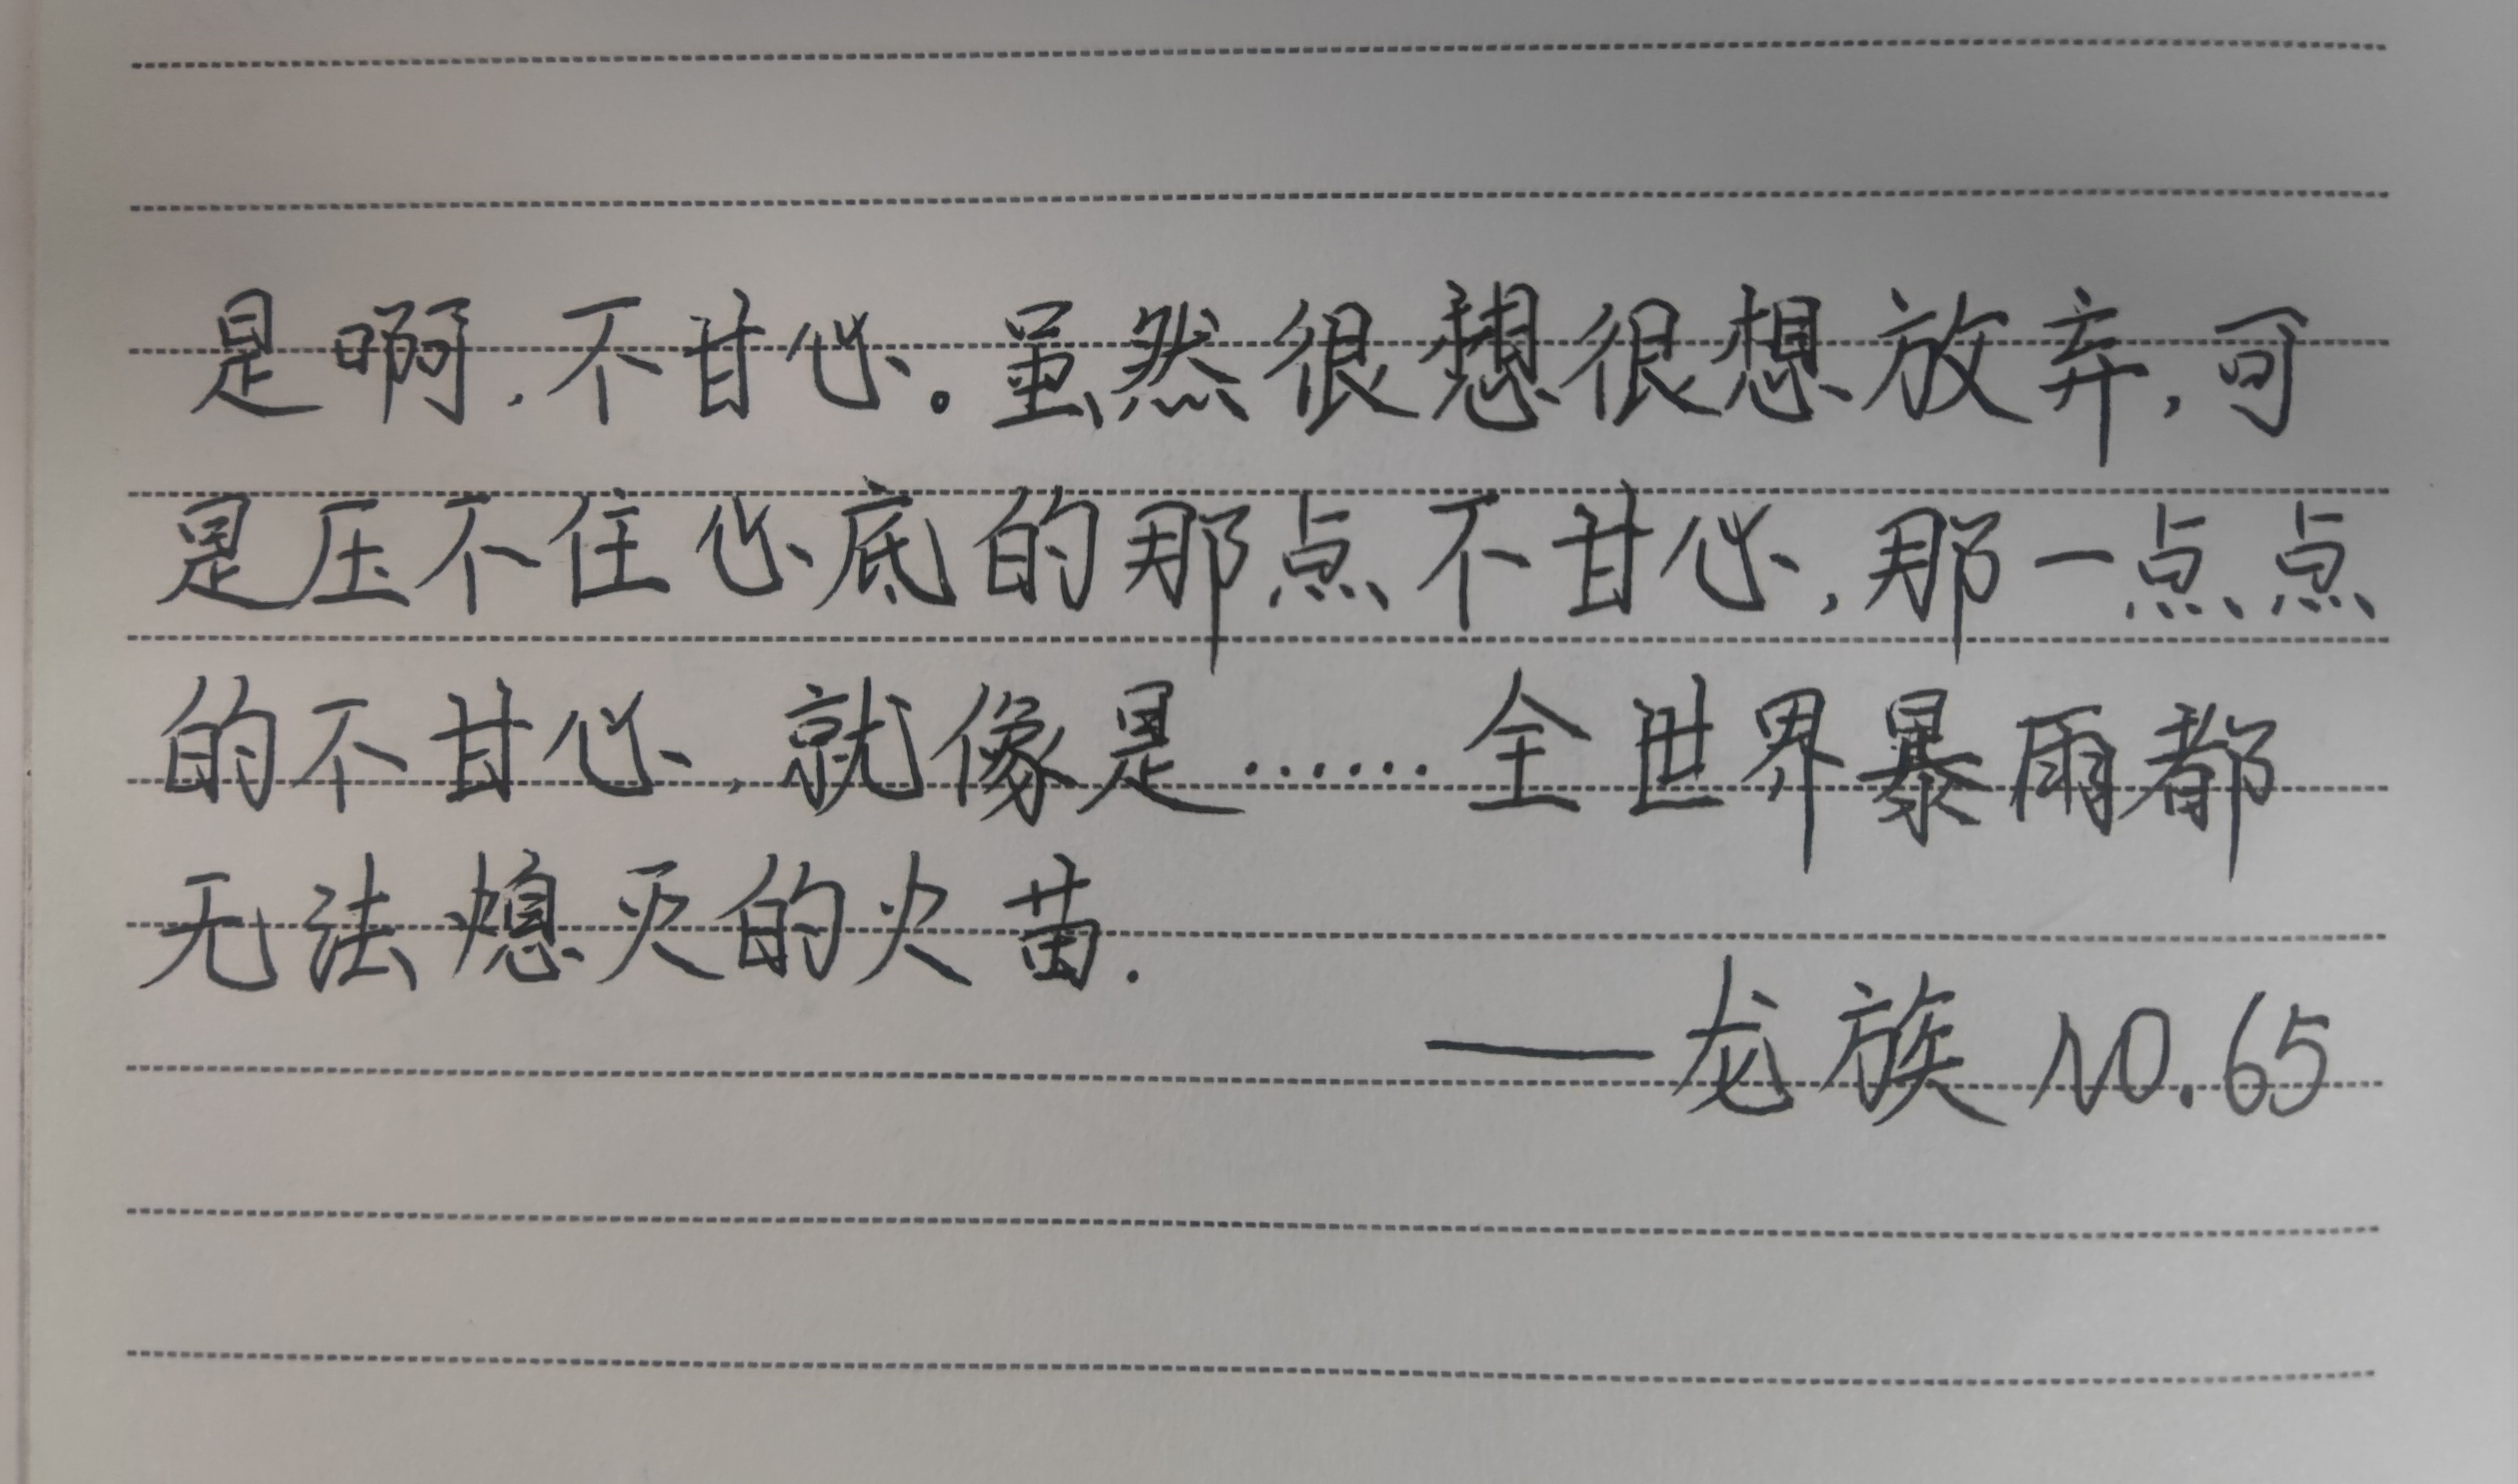 是啊,不甘心。虽然很想很想放弃,可
是压不住心底的那点不甘心,那一点点
的不甘心,就像是……全世界暴雨都
无法熄灭的火苗.
——龙族 NO.65